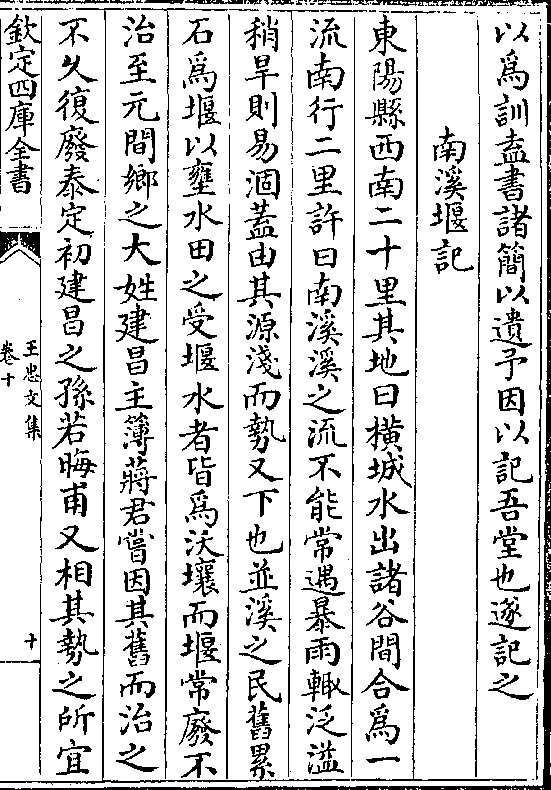 以爲訓盍書諸簡以遺予因以記吾堂也遂記之
南溪堰記
東陽縣西南二十里其地曰橫城水出諸谷間合爲一
流南行二里許曰南溪溪之流不能常遇暴雨輙泛溢
稍旱則易涸蓋由其源淺而勢又下也並溪之民舊累
石爲堰以壅水田之受堰水者皆爲沃壤而堰常廢不
治至元間鄉之大姓建昌主簿蔣君嘗因其舊而治之
不久復廢泰定初建昌之孫若晦甫又相其勢之所宜
欽定四庫全書
王忠文集
卷十
十